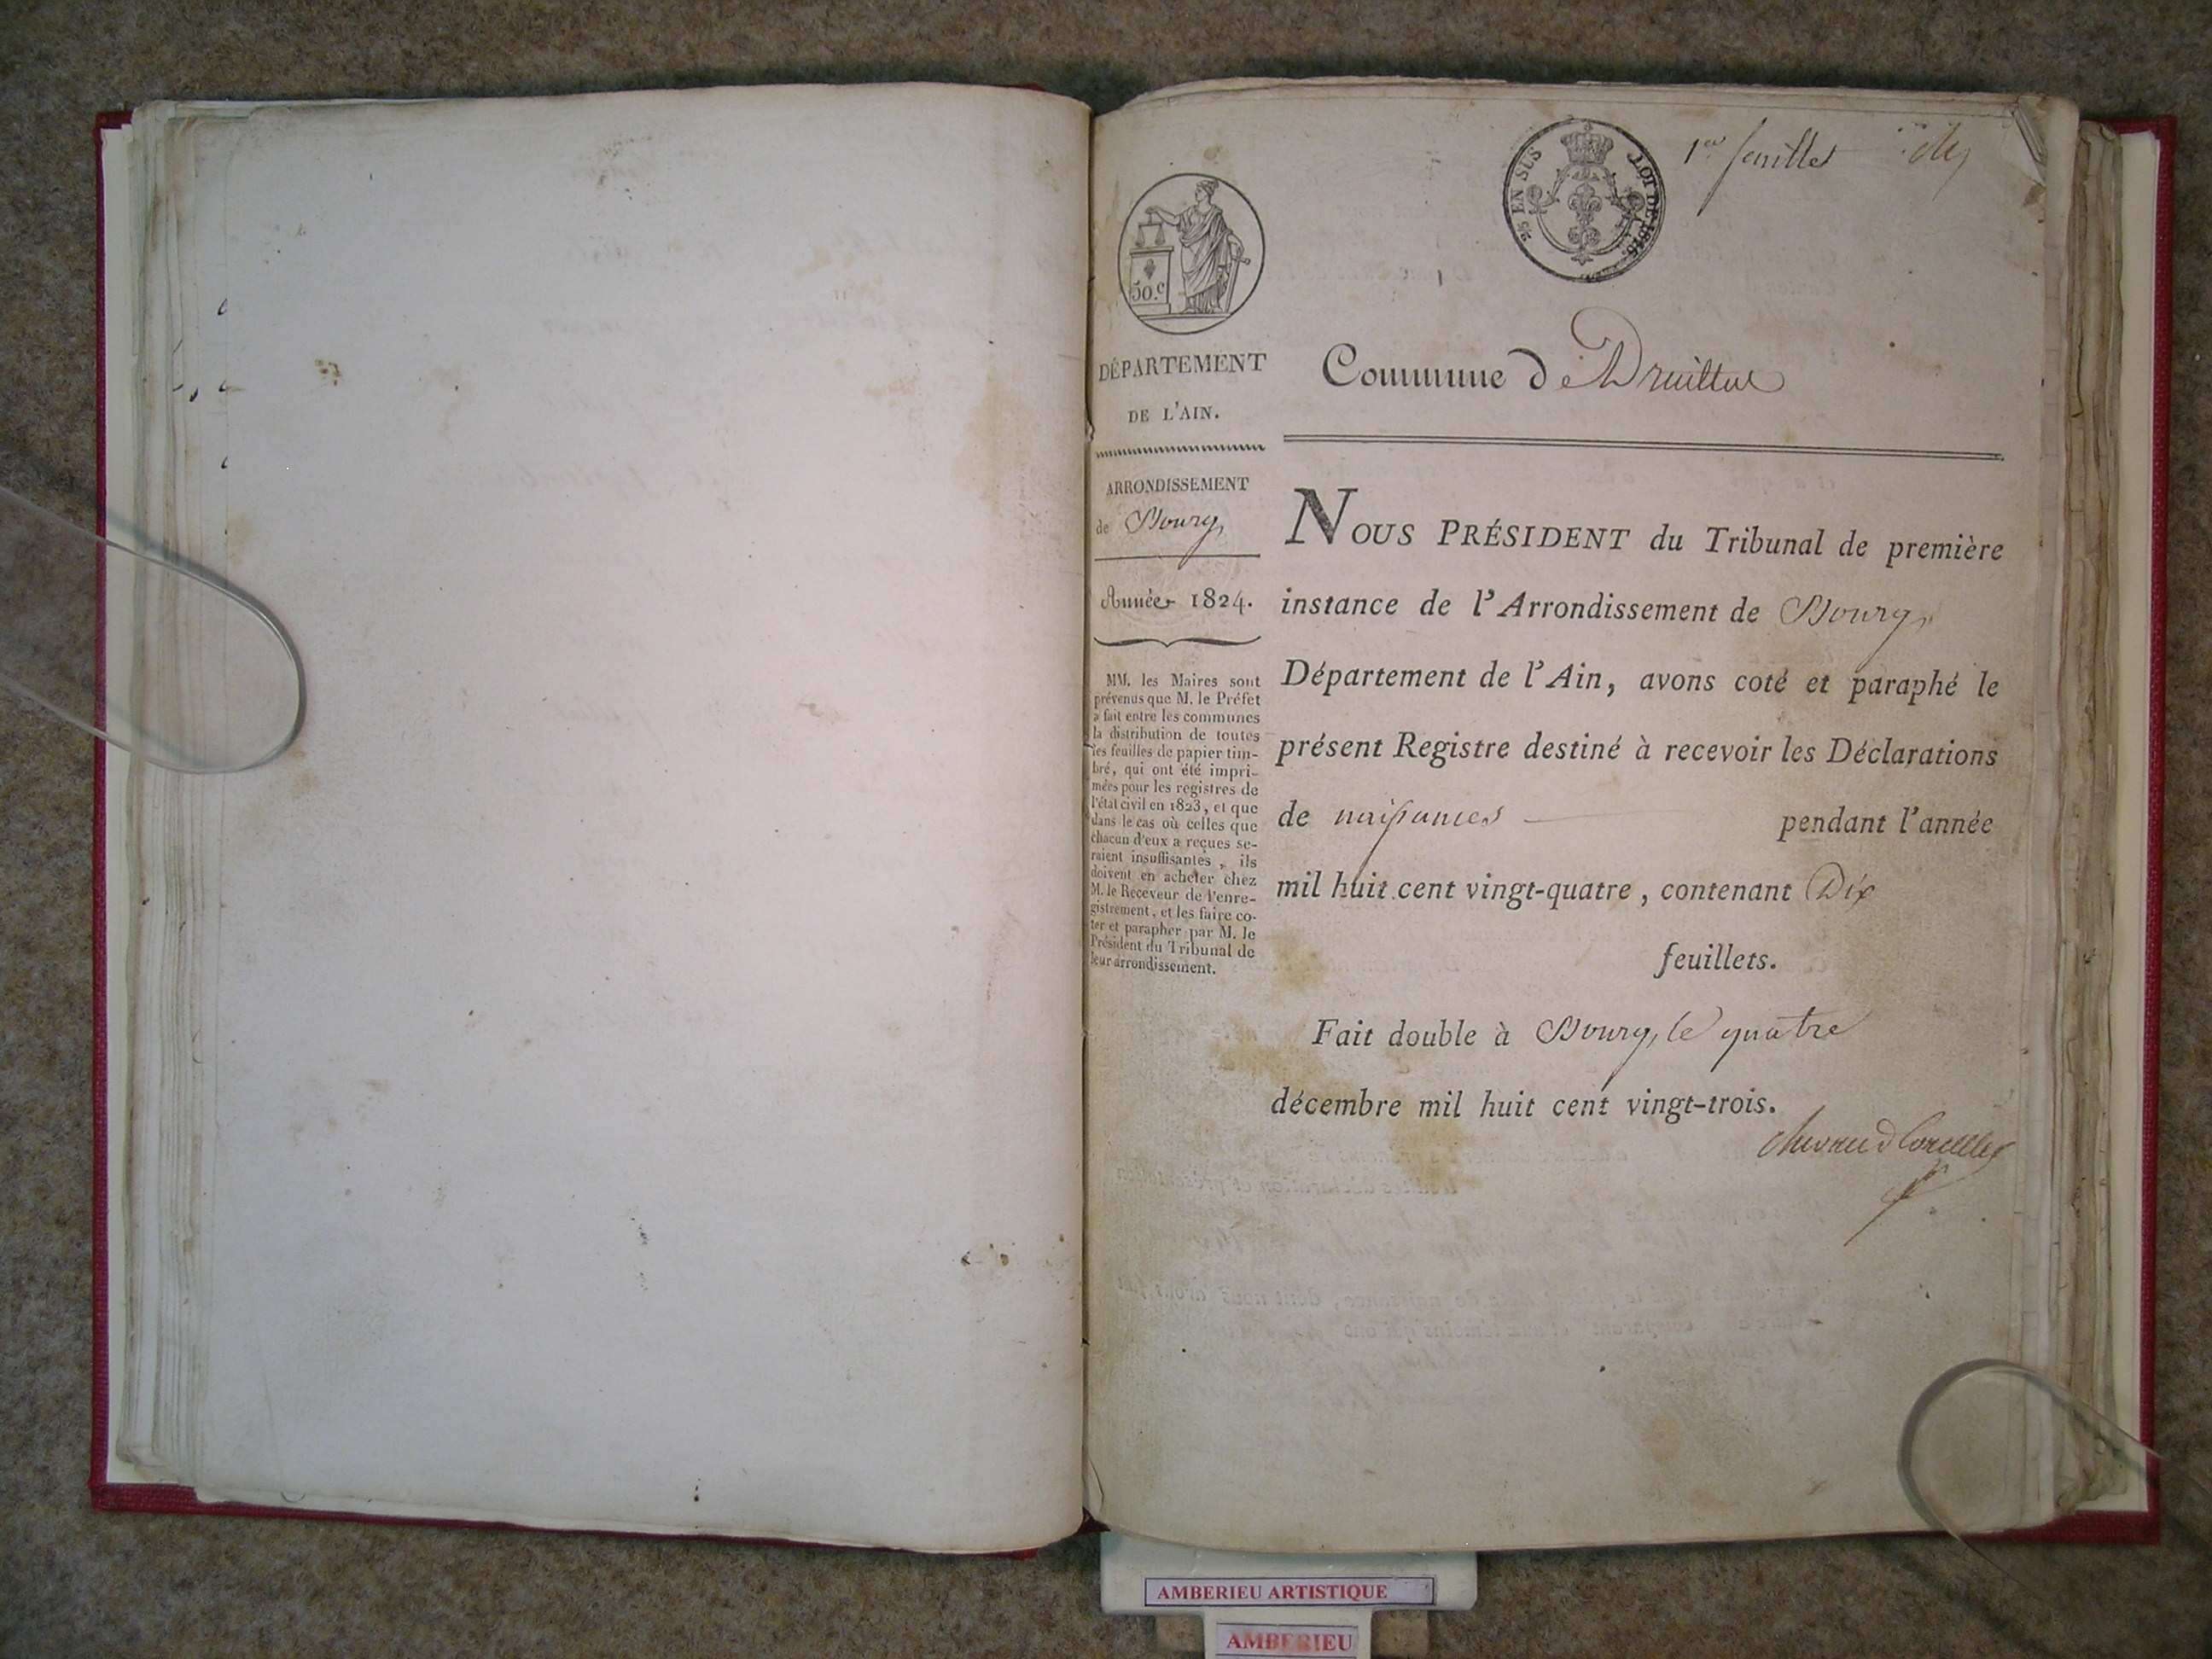 1er feuillet
25 EN SUS
LOI DE 1816.
50.c
DÉPARTEMENT
DE L'AIN.
ARRONDISSEMENT
de Bourg
Année 1824.
MM. les Maires sont
prévenus que M. le Préfet
a fait entre les communes
la distribution de toutes
les feuilles de papier tim-
bré, qui ont été impri-
mées pour les registres de
l'état civil en 1823, et que
dans le cas où celles que
chacun d'eux a reçues se-
raient insuffisantes, ils
doivent en acheter chez
M. le Receveur de l'enre-
gistrement, et les faire co-
ter et parapher par M. le
Président du Tribunal de
leur arrondissement.
Commune de Druillat
NOUS PRÉSIDENT du Tribunal de première
instance de l'Arrondissement de Bourg,
Département de l'Ain, avons coté et paraphé le
présent Registre destiné à recevoir les Déclarations
de naissances pendant l'année
mil huit cent vingt-quatre, contenant Dix
feuillets.
Fait double à Bourg, le quatre
décembre mil huit cent vingt-trois.
AMBERIEU ARTISTIQUE
AMBERIEU